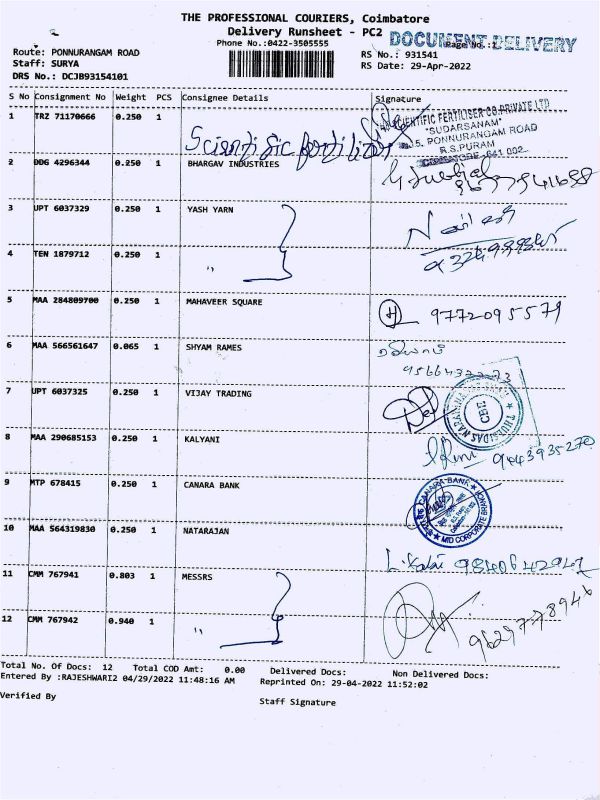 THE PROFESSIONAL COURIERS, Coimbatore
Delivery Runsheet - PC2
Phone No.:0422-3505555
DOCUMENT DELIVERY
Page No.:1
Route: PONNURANGAM ROAD
RS No.: 931541
Staff: SURYA
RS Date: 29-Apr-2022
DRS No.: DCJB93154101
S No Consignment No Weight PCS Consignee Details Signature
1 TRZ 71170666 0.250 1
Scientific fertilizer
SCIENTIFIC FERTILISER CO.PRIVATE LTD
"SUDARSANAM"
5, PONNURANGAM ROAD
R.S.PURAM
COIMBATORE - 641 002
2 DDG 4296344 0.250 1 BHARGAV INDUSTRIES
3 UPT 6037329 0.250 1 YASH YARN
4 TEN 1879712 0.250 1 "
5 MAA 284809700 0.250 1 MAHAVEER SQUARE
9772095579
6 MAA 566561647 0.065 1 SHYAM RAMES
7 UPT 6037325 0.250 1 VIJAY TRADING
CBE
8 MAA 290685153 0.250 1 KALYANI
9443935270
9 MTP 678415 0.250 1 CANARA BANK
CANARA BANK
MID CORPORATE BRANCH
10 MAA 564319830 0.250 1 NATARAJAN
9840642947
11 CMM 767941 0.803 1 MESSRS
12 CMM 767942 0.940 1 "
9629778946
Total No. Of Docs: 12 Total COD Amt: 0.00 Delivered Docs: Non Delivered Docs:
Entered By :RAJESHWARI2 04/29/2022 11:48:16 AM Reprinted On: 29-04-2022 11:52:02
Verified By
Staff Signature